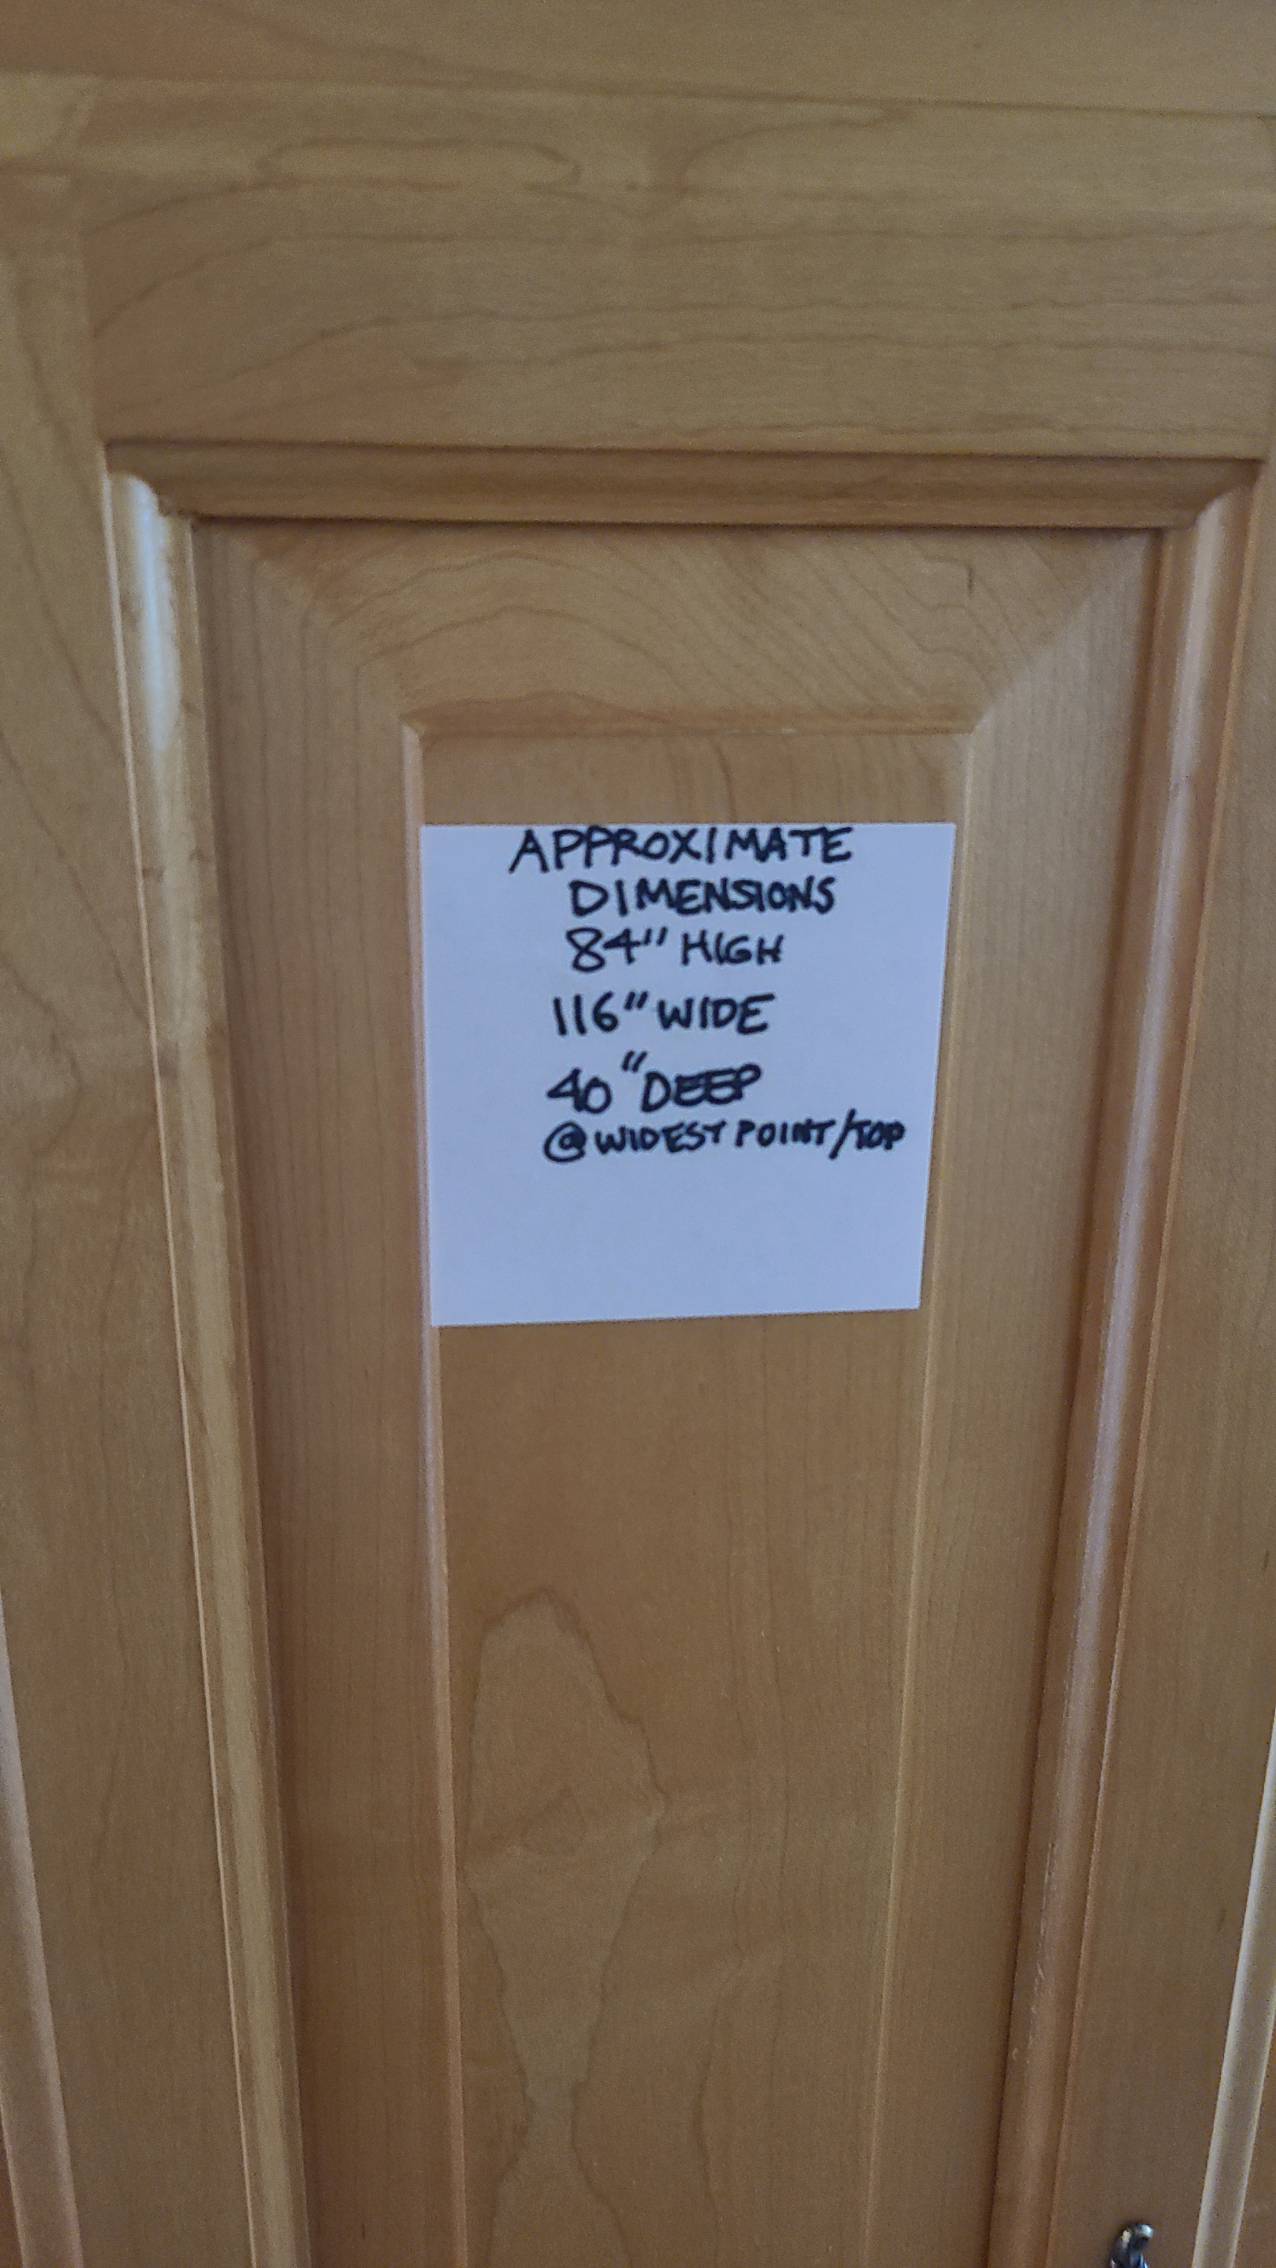 APPROXIMATE
DIMENSIONS
84" HIGH
116" WIDE
40" DEEP
@ WIDEST POINT/TOP